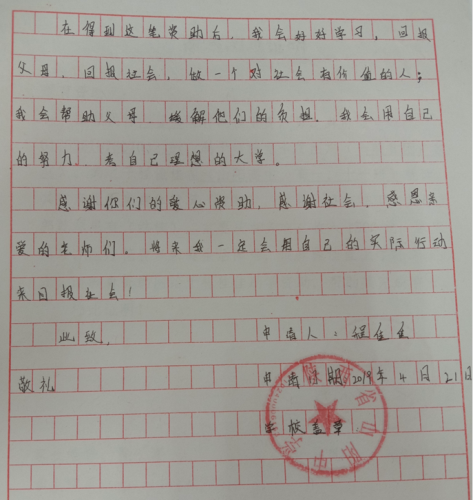 在得到这笔资助后，我会好好学习，回报
父母，回报社会，做一个对社会有价值的人；
我会帮助父母，缓解他们的负担，我会用自己
的努力，考自己理想的大学。
感谢你们的爱心资助，感谢社会，感恩亲
爱的老师们，将来我一定会用自己的实际行动
来回报社会！
此致， 申请人：
敬礼 申请日期2019年4月21日
学校盖章
陕西省山阳中学